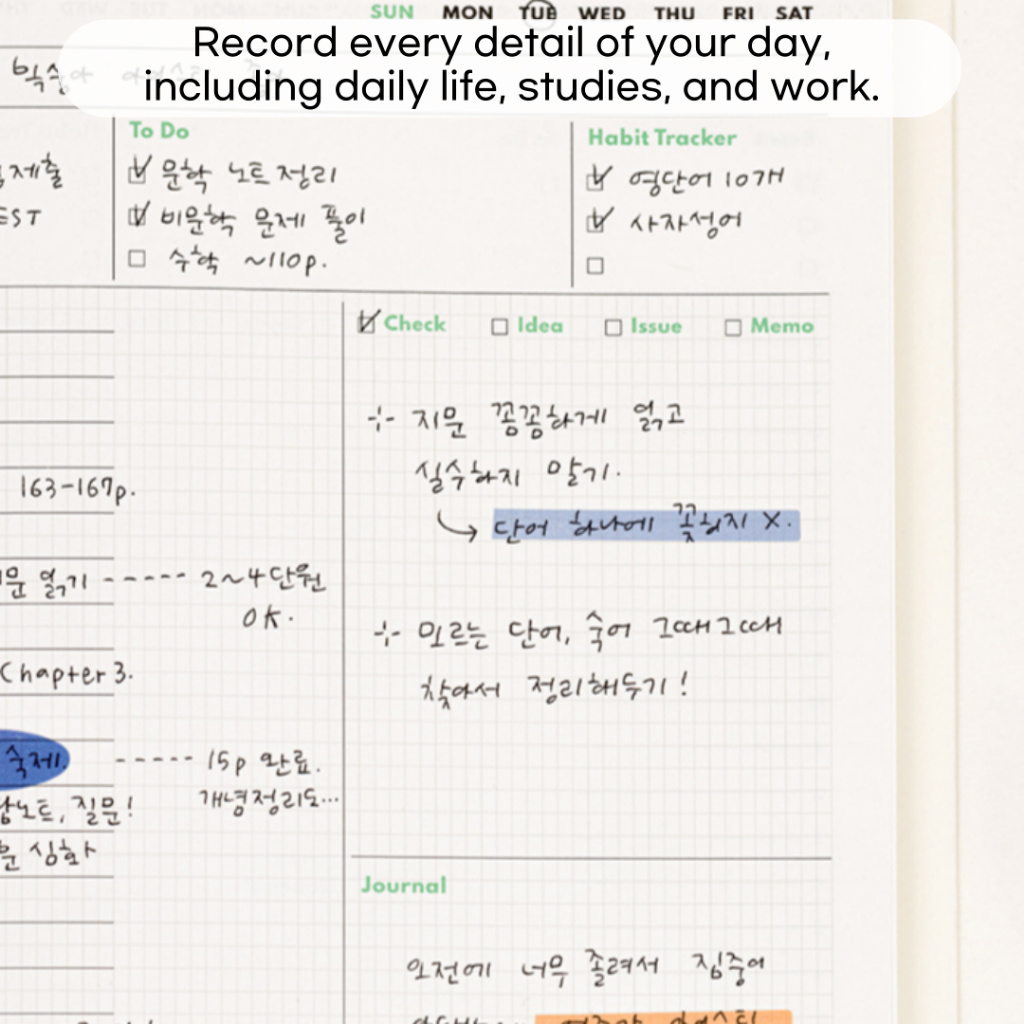 SUN MON TUE WED THU FRI SAT
Record every detail of your day,
including daily life, studies, and work.
제출
EST
To Do
문학 노트 정리
비문학 문제 풀이
수학 ~110p.
Habit Tracker
영단어 10개
사자성어
163-167p.
문 읽기 ----- 2~4단원
OK.
Chapter 3.
숙제. ----- 15p 완료.
개념정리도...
노트, 질문!
심화
Check Idea Issue Memo
지문 꼼꼼하게 읽고
실수하지 말기.
단어 하나에 꽂히지 X.
모르는 단어, 숙어 그때그때
찾아서 정리해두기!
Journal
오전에 너무 졸려서 집중이